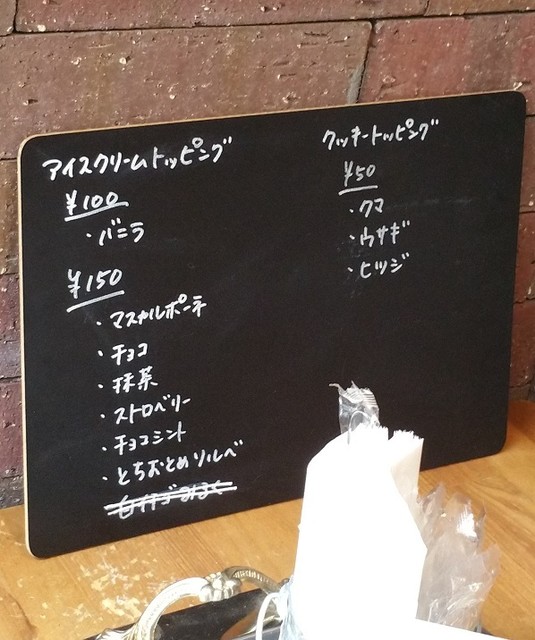 アイスクリームトッピング
¥100
・バニラ
¥150
・マスカルポーネ
・チョコ
・抹茶
・ストロベリー
・チョコミント
・とちおとめソルベ
クッキートッピング
¥50
・クマ
・ウサギ
・ヒツジ